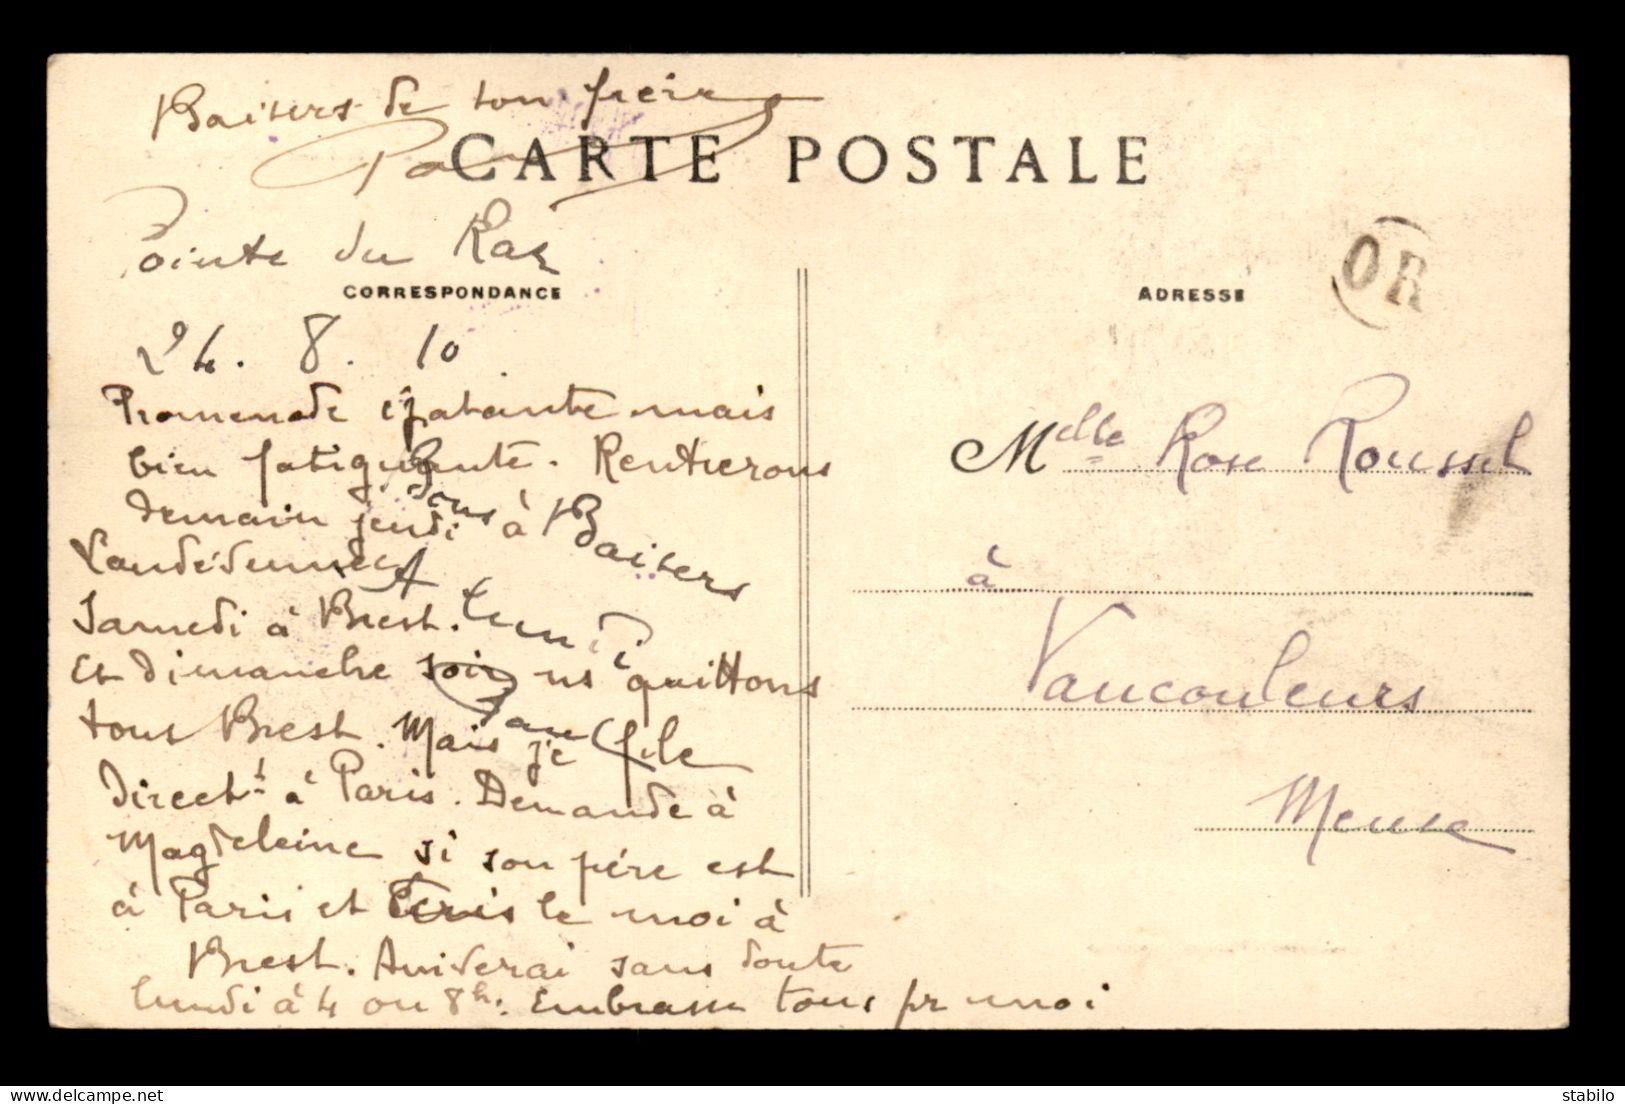 Baisers de ton frère
CARTE POSTALE
Pointe du Raz
CORRESPONDANCE
ADRESSE
OR
24. 8. 10
Promenade épatante mais
bien fatiguante. Rentrerons
demain jeudi à
Landédennec
Samedi à Brest.
Et Dimanche soir ns quittons
tous Brest. Mais je file
direct.t à Paris. Demande à
Magdeleine si son père est
à Paris et Ecris le moi à
Brest. Arriverai sans doute
lundi à 4 ou 8h. Embrasse tous pr moi
Baisers
A lundi
Melle Rose Roussel
à
Vaucouleurs
Meuse
© stabilo